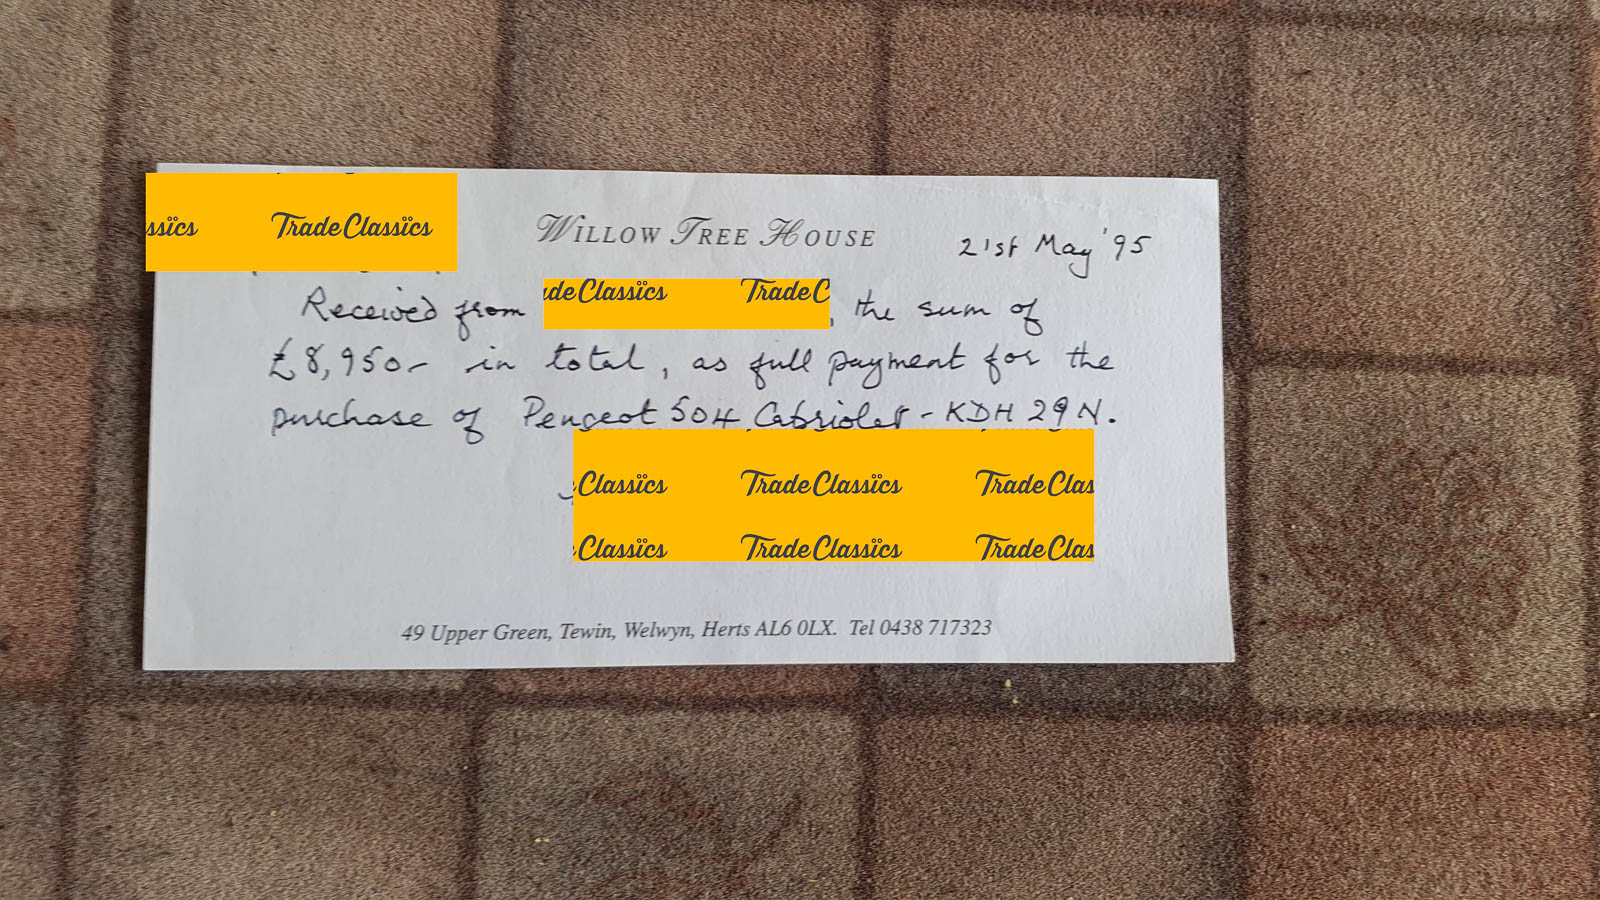 ssïcs Trade Classïcs
WILLOW TREE HOUSE
21st May '95
Received from ade Classïcs Trade C, the sum of
£8,950- in total, as full payment for the
purchase of Peugeot 504 Cabriolet - KDH 29 N.
Classïcs Trade Classïcs Trade Clas
Classïcs Trade Classïcs Trade Clas
49 Upper Green, Tewin, Welwyn, Herts AL6 0LX. Tel 0438 717323